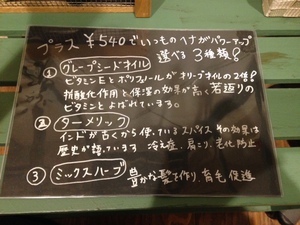 プラス ¥540でいつものヘナがパワーアップ
選べる 3種類!
① グレープシードオイル
ビタミンEとポリフェノールがオリーブオイルの2倍!
抗酸化作用と保湿の効果が高く若返りの
ビタミンとよばれています。
② ターメリック
インドが古くから使っているスパイス その効果は
歴史が語っています 冷え症、肩こり、老化防止
③ ミックスハーブ
豊かな髪を作り、育毛促進